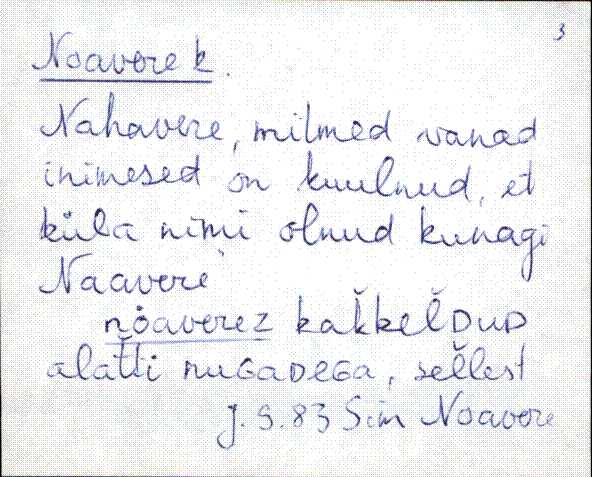 3
Noavere k.
Nahavere, mitmed vanad
inimesed on kuulnud, et
küla nimi olnud kunagi
Naavere
nòaverez kak̆keľDuD
alat̆ti nuGaDeGa, sellest
J. S. 83 Sim Noavere